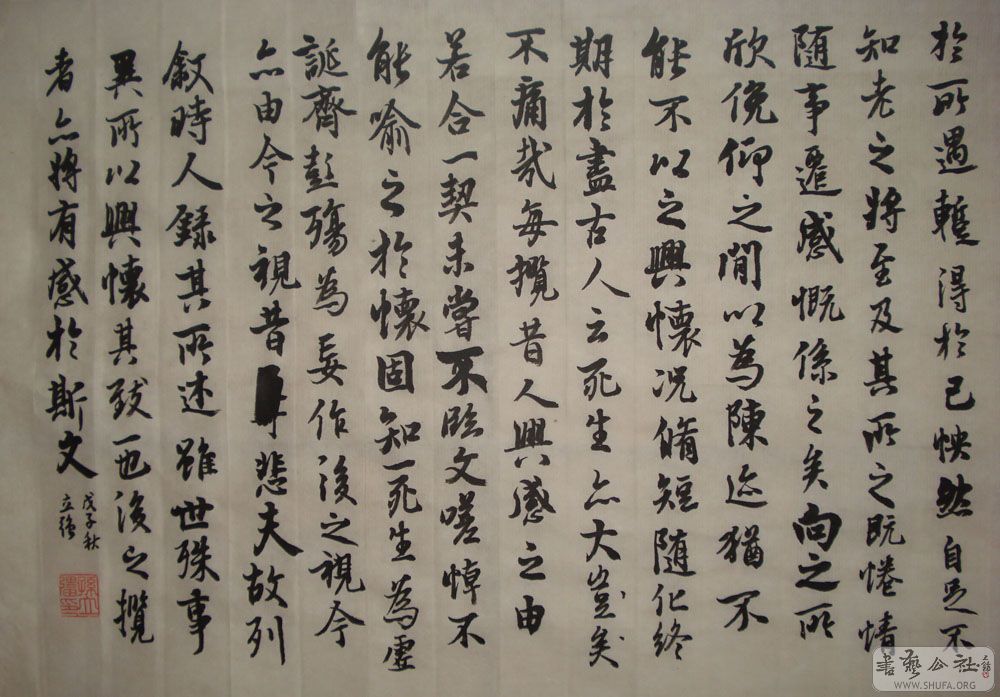 於所遇輒得於己怏然自足不
知老之將至及其所之既惓情
随事遷感慨係之矣向之所
欣俛仰之閒以為陳迹猶不
能不以之興懷況脩短随化終
期於盡古人云死生亦大矣豈
不痛哉每攬昔人興感之由
若合一契未嘗不臨文嗟悼不
能喻之於懷固知一死生為虛
誕齊彭殤為妄作後之視今
亦由今之視昔悲夫故列
叙時人録其所述雖世殊事
異所以興懷其致一也後之攬
者亦將有感於斯文
戊子秋
立強
書藝公社
WWW.SHUFA.ORG